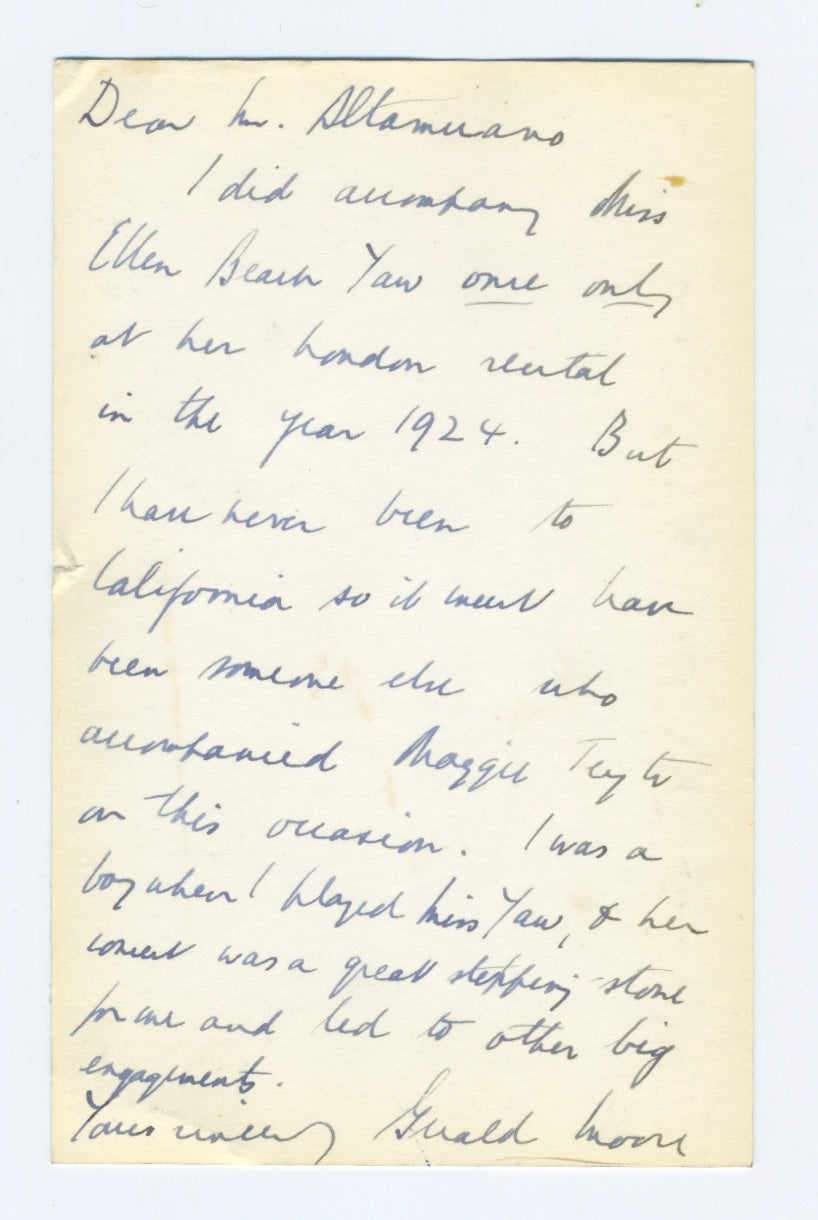 Dear Mr. Altamirano
I did accompany Miss
Ellen Beach Yaw once only
at her London recital
in the year 1924. But
I have never been to
California so it must have
been someone else who
accompanied Maggie Teyte
on this occasion. I was a
boy when I played Miss Yaw, & her
concert was a great stepping-stone
for me and led to other big
engagements.
Yours sincerely Gerald Moore